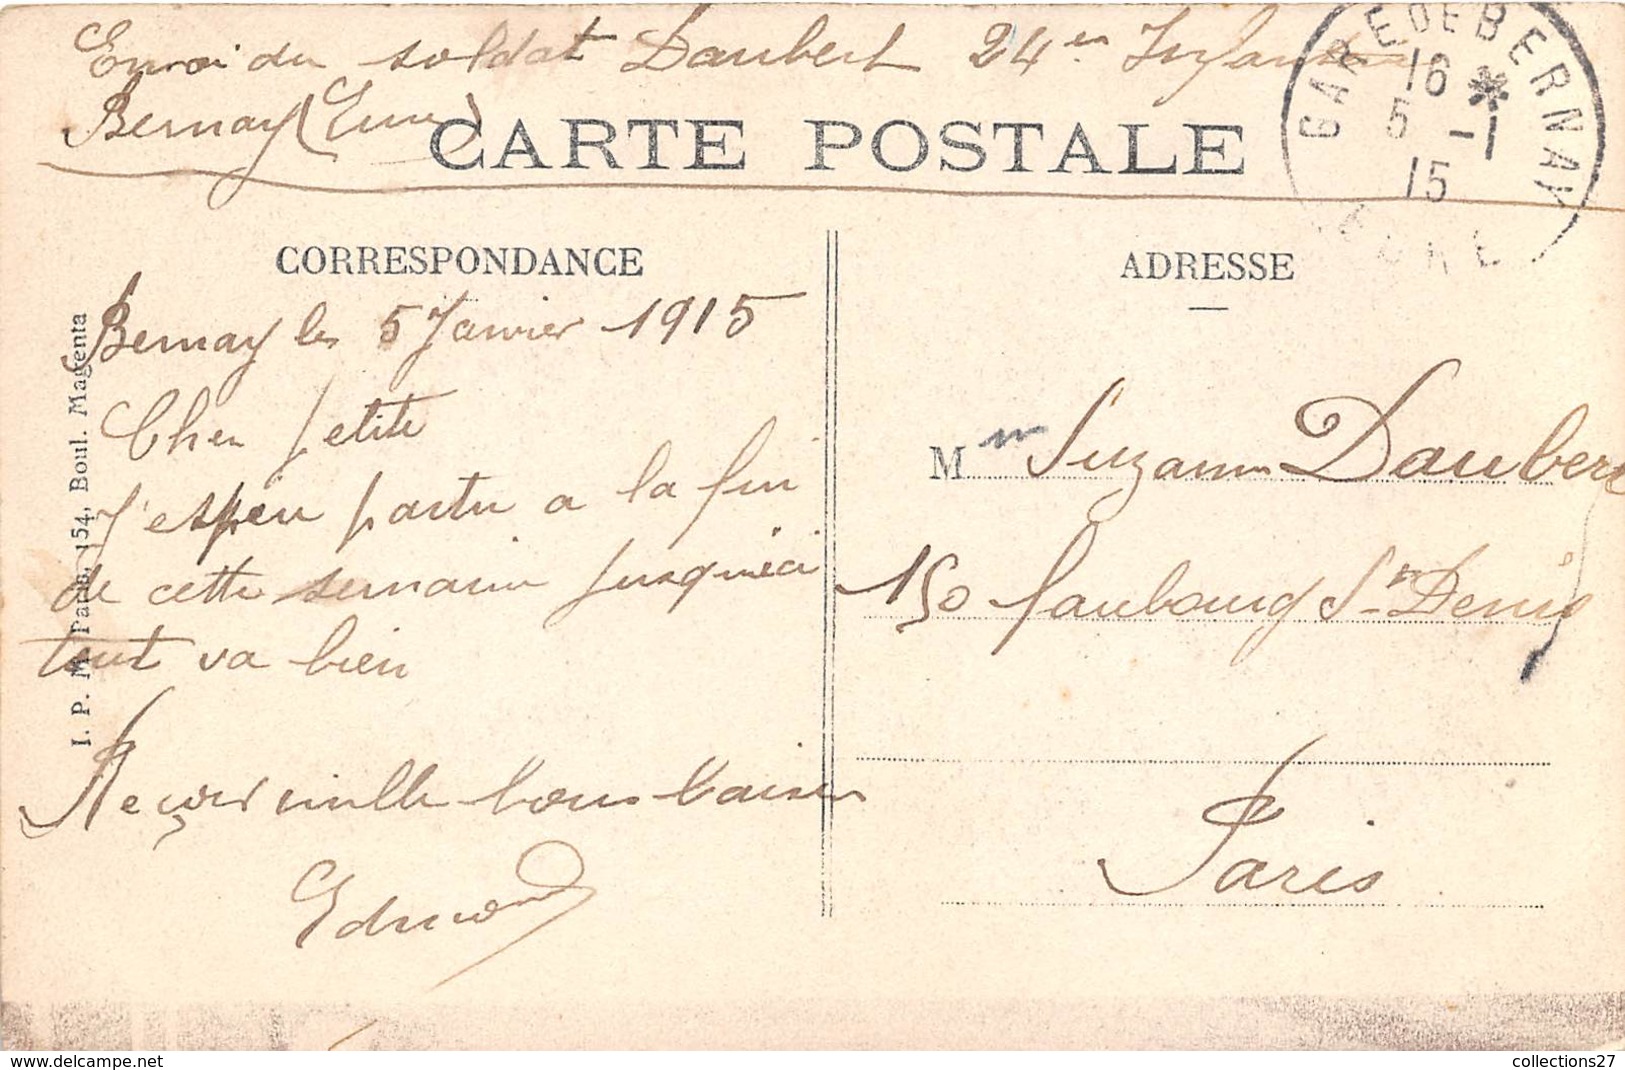 Envoi du soldat Daubert 24en Infanterie
Bernay (Eure)
CARTE POSTALE
GARE DE BERNAY
16 *
5 -1
15
EURE
CORRESPONDANCE
Bernay le 5 Janvier 1915
Cher petite
J'espère partir a la fin
de cette semaine jusqu'ici
tout va bien
Reçois mille bons baisers
Edmond
I. P. M. Paris, 154, Boul. Magenta
ADRESSE
Mm Suzanne Daubert
150 faubourg St Denis
Paris
www.delcampe.net
collections27